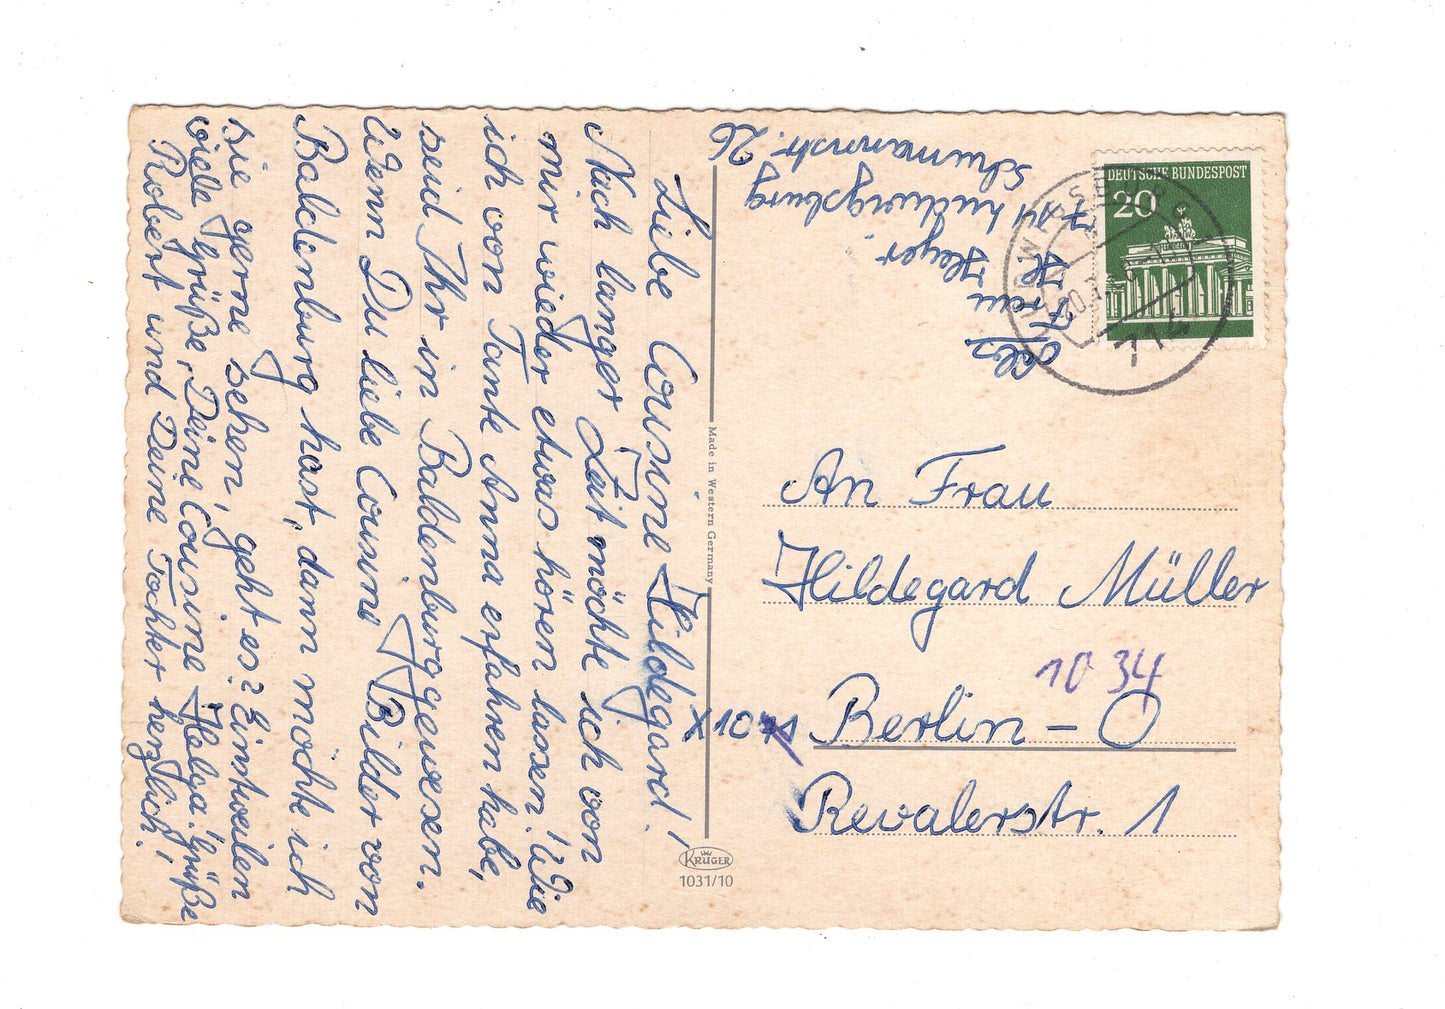 Liebe Cousine Hildegard!
Nach langer Zeit möchte ich von
mir wieder etwas hören lassen! Wie
ich von Tante Anna erfahren habe,
seid Ihr in Baldenburg gewesen.
Wenn Du liebe Cousine Bilder von
Baldenburg hast, dann möchte ich
sie gerne sehen, geht es? Einstweilen
viele Grüße, Deine Cousine Helga. Grüße
Robert und Deine Tochter herzlich!
Made in Western Germany
KRÜGER
1031/10
Frau H.
Heyer
714 Ludwigsburg
Schumannstr. 26
DEUTSCHE BUNDESPOST
20
714
An Frau
Hildegard Müller
10 34
X 1071 Berlin - O
Revalerstr. 1